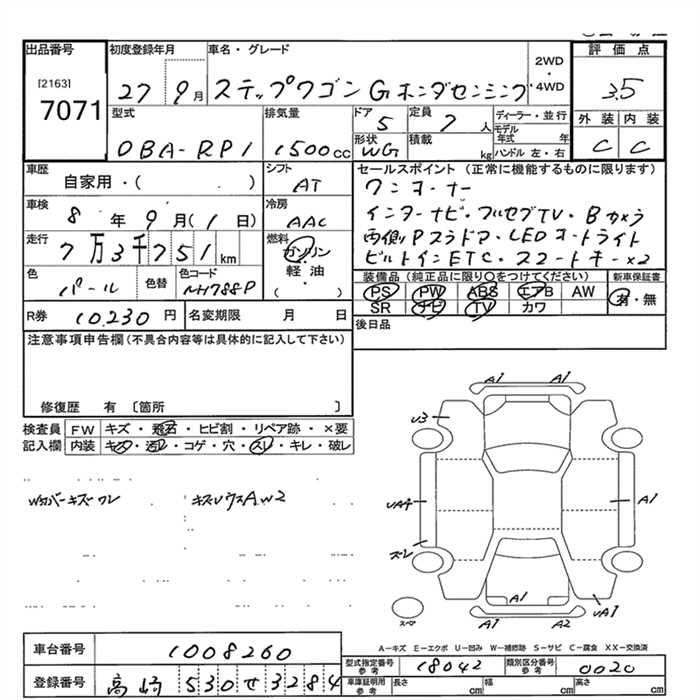 出品番号 初度登録年月 車名・グレード 2WD・4WD 評価点
[2163]
7071
27 9月 ステップワゴン G ホンダセンシング 3.5
型式 排気量 ドア 5 定員 7人 ディーラー・並行 外装 内装
DBA-RP1 1500cc 形状 WG 積載 kg モデル年式 年 ハンドル 左・右 C C
車歴 シフト セールスポイント (正常に機能するものに限ります)
自家用・( ) AT ワンオーナー
車検 8年 9月(1日) 冷房 AAC インターナビ・フルセグTV・Bカメラ
走行 7万3千751km 燃料 ガソリン・軽油・( ) 両側Pスラドア・LEDオートライト
ビルトインETC・スマートキー×2
色 パール 色替 色コード NH788P
装備品 (純正品に限り○をつけてください) 新車保証書
PS PW ABS エアB AW 有・無
SR ナビ TV カワ
R券 10,230円 名変期限 月 日 後日品
注意事項申告欄(不具合内容等は具体的に記入して下さい)
修復歴 有 〔箇所 〕
検査員 FW キズ・飛石・ヒビ割・リペア跡・×要
記入欄 内装 キズ・汚レ・コゲ・穴・スレ・キレ・破レ
A1 A1
U3
UA4 A1
スレ
A1
UA1
A1 A2
スペア
A-キズ E-エクボ U-凹み W-補修跡 S-サビ C-腐食 XX-交換済
車台番号 1008260
型式指定番号 参考 18042 類別区分番号 参考 0020
登録番号 高崎 530 せ 3284
車庫証明用 参考 長さ cm 幅 cm 高さ cm